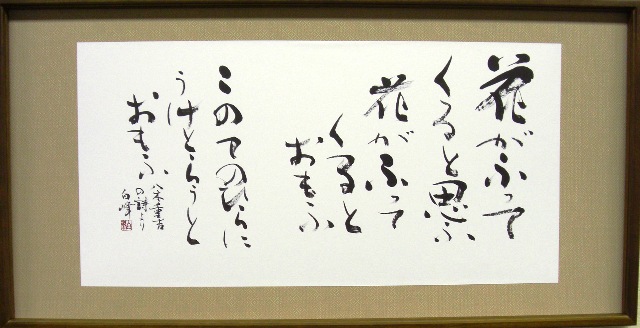 花がふって
くると思ふ
花がふって
くると
おもふ
このてのひらに
うけとらうと
おもふ
八木重吉
の詩より
白峰